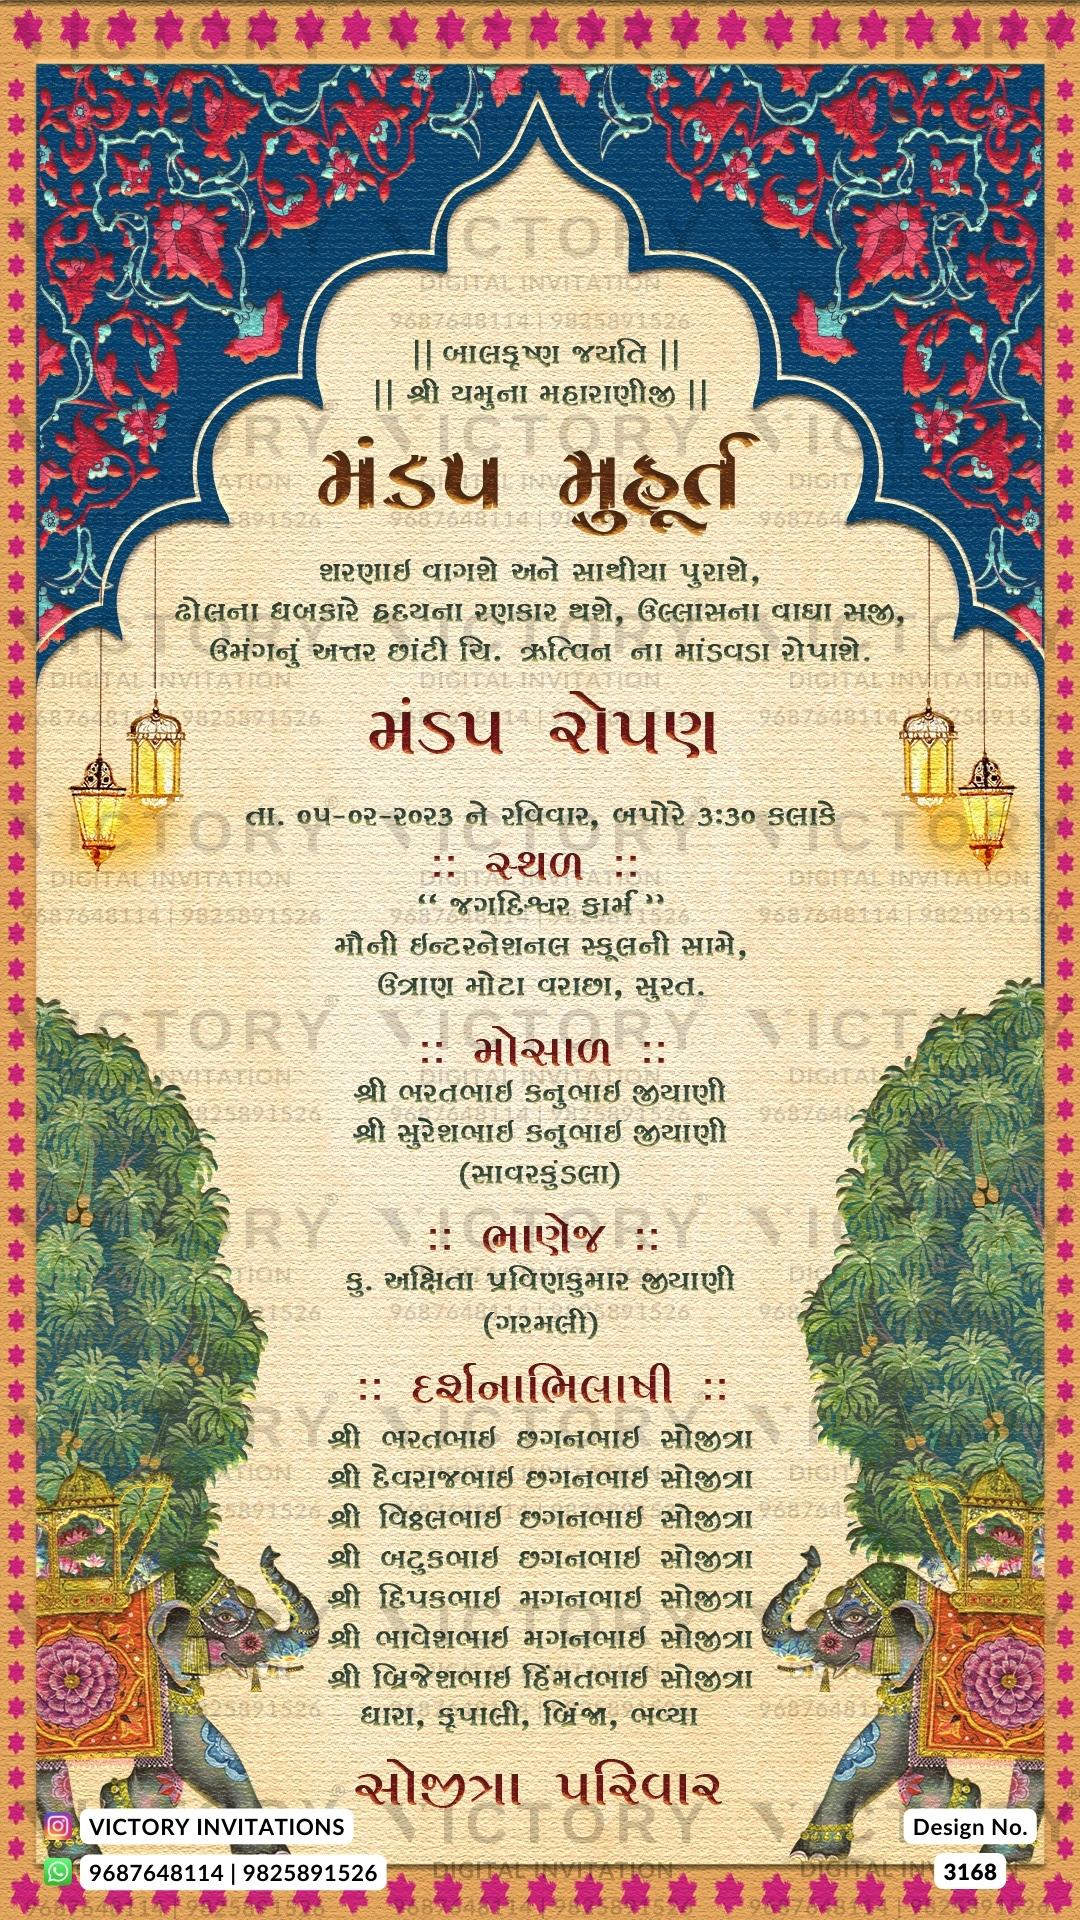 || બાલકૃષ્ણ જયતિ ||
|| શ્રી યમુના મહારાણીજી ||
મંડપ મુહૂર્ત
શરણાઇ વાગશે અને સાથીયા પુરાશે,
ઢોલના ધબકારે હ્રદયના રણકાર થશે, ઉલ્લાસના વાઘા સજી,
ઉમંગનું અત્તર છાંટી ચિ. ઋત્વિન ના માંડવડા રોપાશે.
મંડપ રોપણ
તા. ૦૫-૦૨-૨૦૨૩ ને રવિવાર, બપોરે ૩:૩૦ કલાકે
:: સ્થળ ::
“ જગદિશ્વર ફાર્મ ”
મૌની ઇન્ટરનેશનલ સ્કૂલની સામે,
ઉત્રાણ મોટા વરાછા, સુરત.
:: મોસાળ ::
શ્રી ભરતભાઇ કનુભાઇ જીયાણી
શ્રી સુરેશભાઇ કનુભાઇ જીયાણી
(સાવરકુંડલા)
:: ભાણેજ ::
કુ. અક્ષિતા પ્રવિણકુમાર જીયાણી
(ગરમલી)
:: દર્શનાભિલાષી ::
શ્રી ભરતભાઇ છગનભાઇ સોજીત્રા
શ્રી દેવરાજભાઇ છગનભાઇ સોજીત્રા
શ્રી વિઠ્ઠલભાઇ છગનભાઇ સોજીત્રા
શ્રી બટુકભાઇ છગનભાઇ સોજીત્રા
શ્રી દિપકભાઇ મગનભાઇ સોજીત્રા
શ્રી ભાવેશભાઇ મગનભાઇ સોજીત્રા
શ્રી બ્રિજેશભાઇ હિંમતભાઇ સોજીત્રા
ધારા, કૃપાલી, બ્રિંજા, ભવ્યા
સોજીત્રા પરિવાર
VICTORY INVITATIONS
Design No.
9687648114 | 9825891526
3168